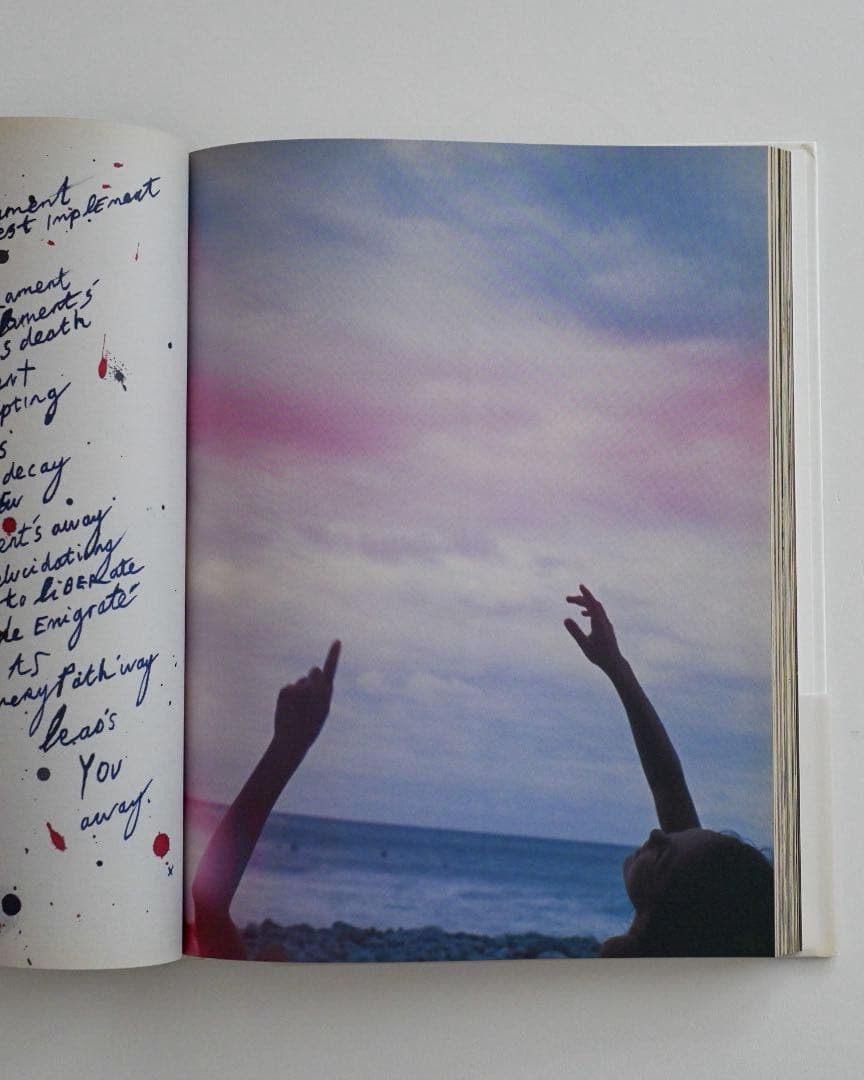 ament
est implement
ament
ament's
s death
ent
pting
s
decay
ent's away
elucidating
to liBERate
de Emigraté
AS
very Path'way
leao's
You
away.
x